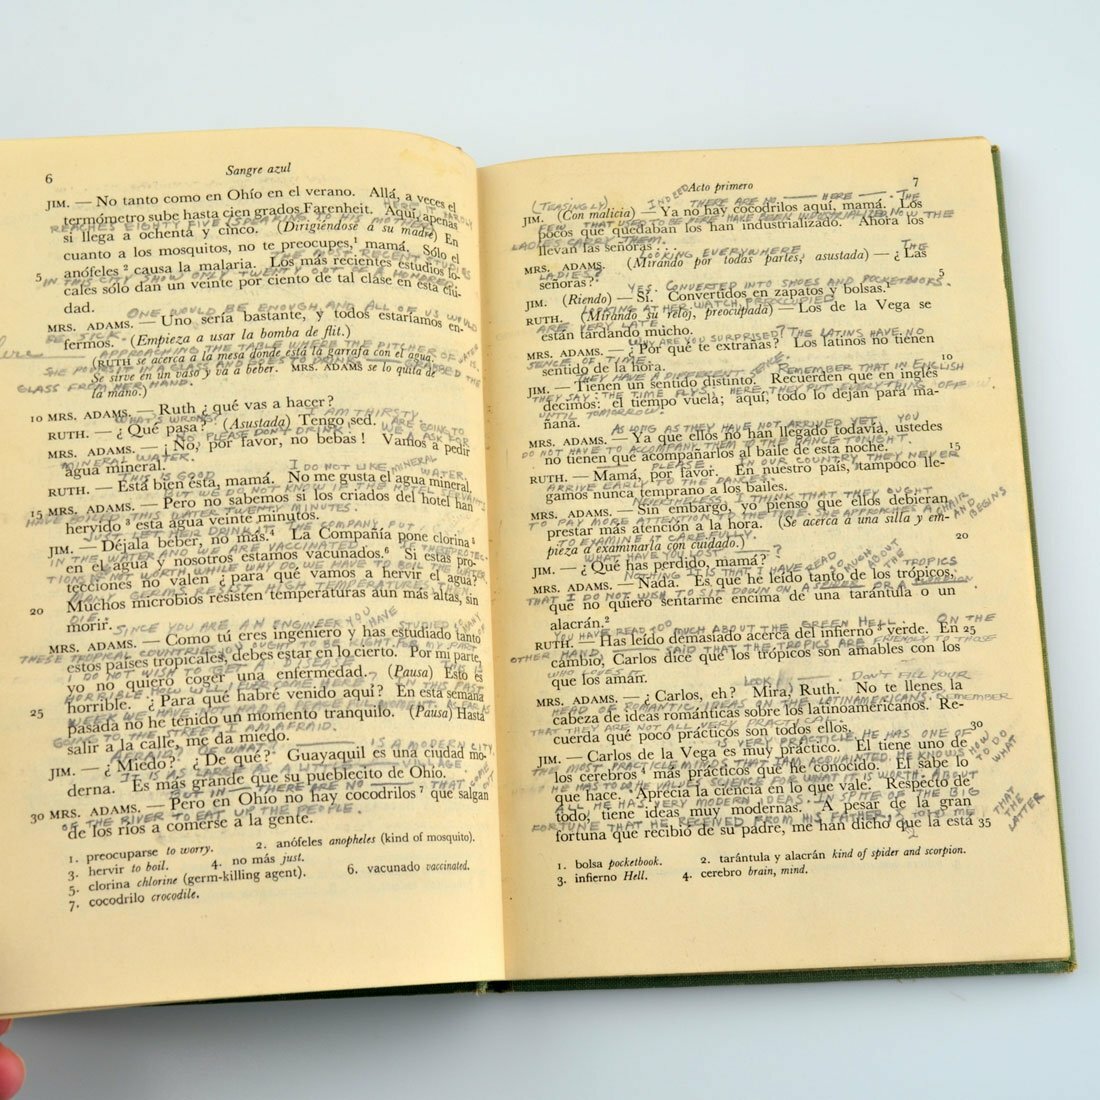 6
Sangre azul
JIM. — No tanto como en Ohío en el verano. Allá, a veces el
termómetro sube hasta cien grados Farenheit. Aquí, apenas
HERE IT HARDLY
REACHES EIGHTY FIVE IS SPEAKING TO HIS MOTHER
si llega a ochenta y cinco. (Dirigiéndose a su madre) En
cuanto a los mosquitos, no te preocupes,¹ mamá. Sólo el
5 anófeles ² causa la malaria. Los más recientes estudios lo-
IN THIS CITY SHOW ONLY TWENTY OUT OF A HUNDRED
cales sólo dan un veinte por ciento de tal clase en esta ciu-
dad.
ONE WOULD BE ENOUGH, AND ALL OF US WOULD
MRS. ADAMS. — Uno sería bastante, y todos estaríamos en-
BE SICK.
fermos. (Empieza a usar la bomba de flit.)
APPROACHING THE TABLE WHERE THE PITCHER OF WATER IS
(RUTH se acerca a la mesa donde está la garrafa con el agua.
SHE POURS IT IN A GLASS AND GOES TO DRINK GRABBED THE
Se sirve en un vaso y va a beber. MRS. ADAMS se lo quita de
GLASS FROM HER HAND.
la mano.)
10 MRS. ADAMS. — Ruth ¿qué vas a hacer?
WHAT'S WRONG? I AM THIRSTY
RUTH. — ¿Qué pasa? (Asustada) Tengo sed.
NO, PLEASE DON'T DRINK! WE ARE GOING TO ASK FOR
MRS. ADAMS. — ¡No, por favor, no bebas! Vamos a pedir
MINERAL WATER.
agua mineral.
THIS IS GOOD I DO NOT LIKE MINERAL WATER.
RUTH. — Está bien esta, mamá. No me gusta el agua mineral.
BUT WE DO NOT KNOW IF THE HOTEL SERVANTS
MRS. ADAMS. — Pero no sabemos si los criados del hotel han
HAVE BOILED THIS WATER TWENTY MINUTES.
15 hervido ³ esta agua veinte minutos.
JUST LET HER DRINK IT THE COMPANY PUT
JIM. — Déjala beber, no más.⁴ La Compañía pone clorina ⁵
IN THE WATER AND WE ARE VACCINATED. IF THESE PROTEC-
en el agua y nosotros estamos vacunados.⁶ Si estas pro-
TIONS BE NOT WORTH WHILE WHY DO WE HAVE TO BOIL THE WATER
tecciones no valen ¿para qué vamos a hervir el agua?
MANY GERMS RESIST
Muchos microbios resisten temperaturas aun más altas, sin
DIE.
20 morir.
SINCE YOU ARE AN ENGINEER YOU HAVE STUDIED SO MANY
MRS. ADAMS. — Como tú eres ingeniero y has estudiado tanto
THESE TROPICAL COUNTRIES YOU OUGHT TO BE RIGHT. FOR MY PART
estos países tropicales, debes estar en lo cierto. Por mi parte,
I DO NOT WISH TO GET A DISEASE THIS IS
yo no quiero coger una enfermedad. (Pausa) Esto es
horrible. ¿Para qué habré venido aquí? En esta semana
25 pasada no he tenido un momento tranquilo. (Pausa) Hasta
GOING TO THE STREET I AM AFRAID.
salir a la calle, me da miedo.
AFRAID? OF WHAT? IS A MODERN CITY.
JIM. — ¿Miedo? ¿De qué? Guayaquil es una ciudad mo-
IT IS AS LARGE AS A LITTLE VILLAGE
derna. Es más grande que su pueblecito de Ohío.
BUT IN THERE ARE NO THAT COME OUT
MRS. ADAMS. — Pero en Ohío no hay cocodrilos ⁷ que salgan
OF THE RIVER TO EAT UP THE PEOPLE.
30 de los ríos a comerse a la gente.
1. preocuparse to worry. 2. anófeles anopheles (kind of mosquito).
3. hervir to boil. 4. no más just.
5. clorina chlorine (germ-killing agent). 6. vacunado vaccinated.
7. cocodrilo crocodile.
Acto primero
7
(TEASINGLY) INDEED THERE ARE NO HERE THE
JIM. (Con malicia) — Ya no hay cocodrilos aquí, mamá. Los
FEW THAT USED TO BE HERE HAVE BEEN INDUSTRIALIZED NOW THE
pocos que quedaban los han industrializado. Ahora los
LADIES CARRY THEM.
llevan las señoras . . .
LOOKING EVERYWHERE THE
MRS. ADAMS. (Mirando por todas partes, asustada) — ¿Las
LADIES?
señoras?
5
YES. CONVERTED INTO SHOES AND POCKETBOOKS.
JIM. (Riendo) — Sí. Convertidos en zapatos y bolsas.¹
LOOKING AT HER WATCH, PREOCCUPIED
RUTH. (Mirando su reloj, preocupada) — Los de la Vega se
ARE VERY LATE
están tardando mucho.
WHY ARE YOU SURPRISED? THE LATINS HAVE NO
MRS. ADAMS. — ¿Por qué te extrañas? Los latinos no tienen
SENSE OF TIME.
sentido de la hora.
10
THEY HAVE A DIFFERENT SENSE. REMEMBER THAT IN ENGLISH
JIM. — Tienen un sentido distinto. Recuerden que en inglés
THEY SAY: THE TIME FLYS. HERE, THEY PUT EVERYTHING OFF
decimos: el tiempo vuela; aquí, todo lo dejan para ma-
UNTIL TOMORROW.
ñana.
AS LONG AS THEY HAVE NOT ARRIVED YET YOU
MRS. ADAMS. — Ya que ellos no han llegado todavía, ustedes
DO NOT HAVE TO ACCOMPANY THEM TO THE DANCE TONIGHT.
no tienen que acompañarlos al baile de esta noche.
15
PLEASE IN OUR COUNTRY THEY NEVER
RUTH. — Mamá, por favor. En nuestro país, tampoco lle-
ARRIVE EARLY TO THE DANCES.
gamos nunca temprano a los bailes.
NEVERTHELESS, I THINK THAT THEY OUGHT
MRS. ADAMS. — Sin embargo, yo pienso que ellos debieran
TO PAY MORE ATTENTION TO THE TIME. SHE APPROACHES A CHAIR AND BEGINS
prestar más atención a la hora. (Se acerca a una silla y em-
TO EXAMINE IT CAREFULLY.
pieza a examinarla con cuidado.)
20
WHAT HAVE YOU LOST ?
JIM. — ¿Qué has perdido, mamá?
NOTHING IT IS THAT I HAVE READ SO MUCH ABOUT THE TROPICS
MRS. ADAMS. — Nada. Es que he leído tanto de los trópicos,
THAT I DO NOT WISH TO SIT DOWN ON A
que no quiero sentarme encima de una tarántula o un
alacrán.²
YOU HAVE READ TOO MUCH ABOUT THE GREEN HELL. ON THE
RUTH. — Has leído demasiado acerca del infierno ³ verde. En 25
OTHER HAND, SAID THAT THE TROPICS ARE FRIENDLY TO THOSE
cambio, Carlos dice que los trópicos son amables con los
WHO LOVES
que los aman.
LOOK DON'T FILL YOUR
MRS. ADAMS. — ¿Carlos, eh? Mira, Ruth. No te llenes la
HEAD OF ROMANTIC IDEAS ON THE LATINAMERICANS. REMEMBER
cabeza de ideas románticas sobre los latinoamericanos. Re-
THAT THEY ARE NOT ALL VERY PRACTICAL.
cuerda que poco prácticos son todos ellos.
30
IS VERY PRACTICLE. HE HAS ONE OF
JIM. — Carlos de la Vega es muy práctico. El tiene uno de
THE MOST PRACTICLE MINDS THAT I AM ACQUAINTED. HE KNOWS HOW TO DO WHAT
los cerebros ⁴ más prácticos que he conocido. El sabe lo
HE HAS TO DO. HE VALUES SCIENCE FOR WHAT IT IS WORTH. ABOUT
que hace. Aprecia la ciencia en lo que vale. Respecto de
ALL HE HAS VERY MODERN IDEAS. IN SPITE OF THE BIG
todo, tiene ideas muy modernas. A pesar de la gran
FORTUNE THAT HE RECEIVED FROM HIS FATHER,
THAT THE LATTER
fortuna que recibió de su padre, me han dicho que la está 35
1. bolsa pocketbook. 2. tarántula y alacrán kind of spider and scorpion.
3. infierno Hell. 4. cerebro brain, mind.